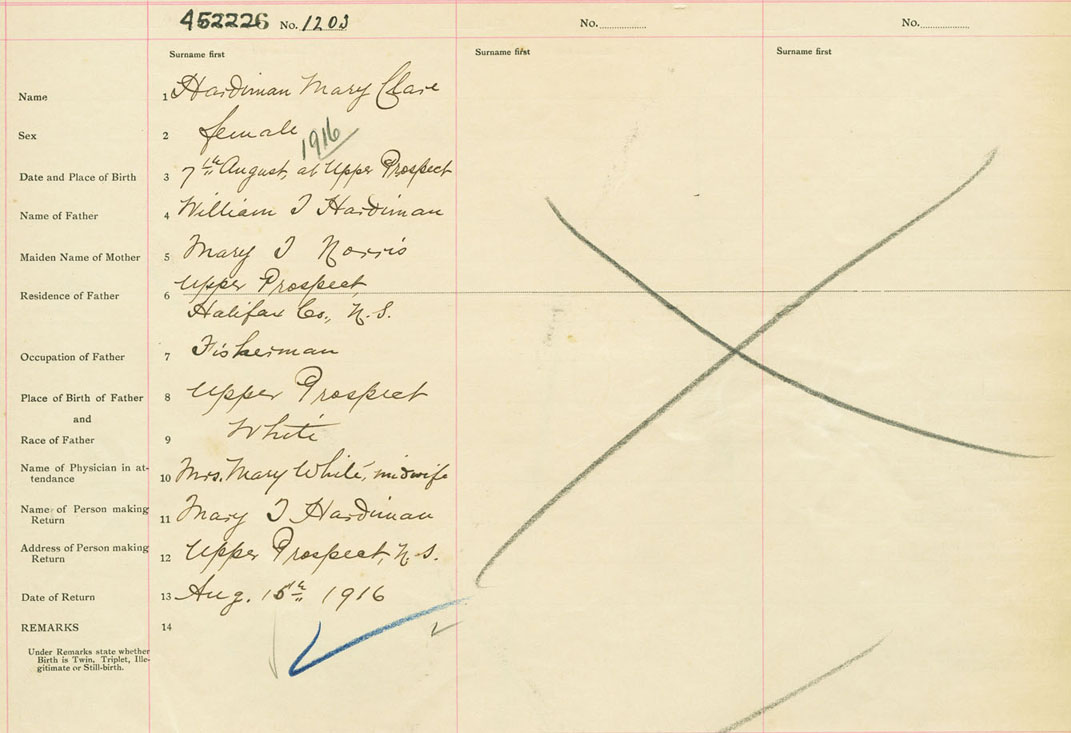 452226 No. 1203 No. No.
Surname first Surname first Surname first
Name 1 Hardiman Mary Clare
Sex 2 female
1916
Date and Place of Birth 3 7th August, at Upper Prospect
Name of Father 4 William J Hardiman
Maiden Name of Mother 5 Mary J Norris
Upper Prospect
Residence of Father 6
Halifax Co., N.S.
Occupation of Father 7 Fisherman
Place of Birth of Father 8 Upper Prospect
and
Race of Father 9 White
Name of Physician in at-
tendance 10 Mrs. Mary White, midwife
Name of Person making
Return 11 Mary J Hardiman
Address of Person making
Return 12 Upper Prospect, N.S.
Date of Return 13 Aug. 15th 1916
REMARKS 14
Under Remarks state whether
Birth is Twin, Triplet, Ille-
gitimate or Still-birth.